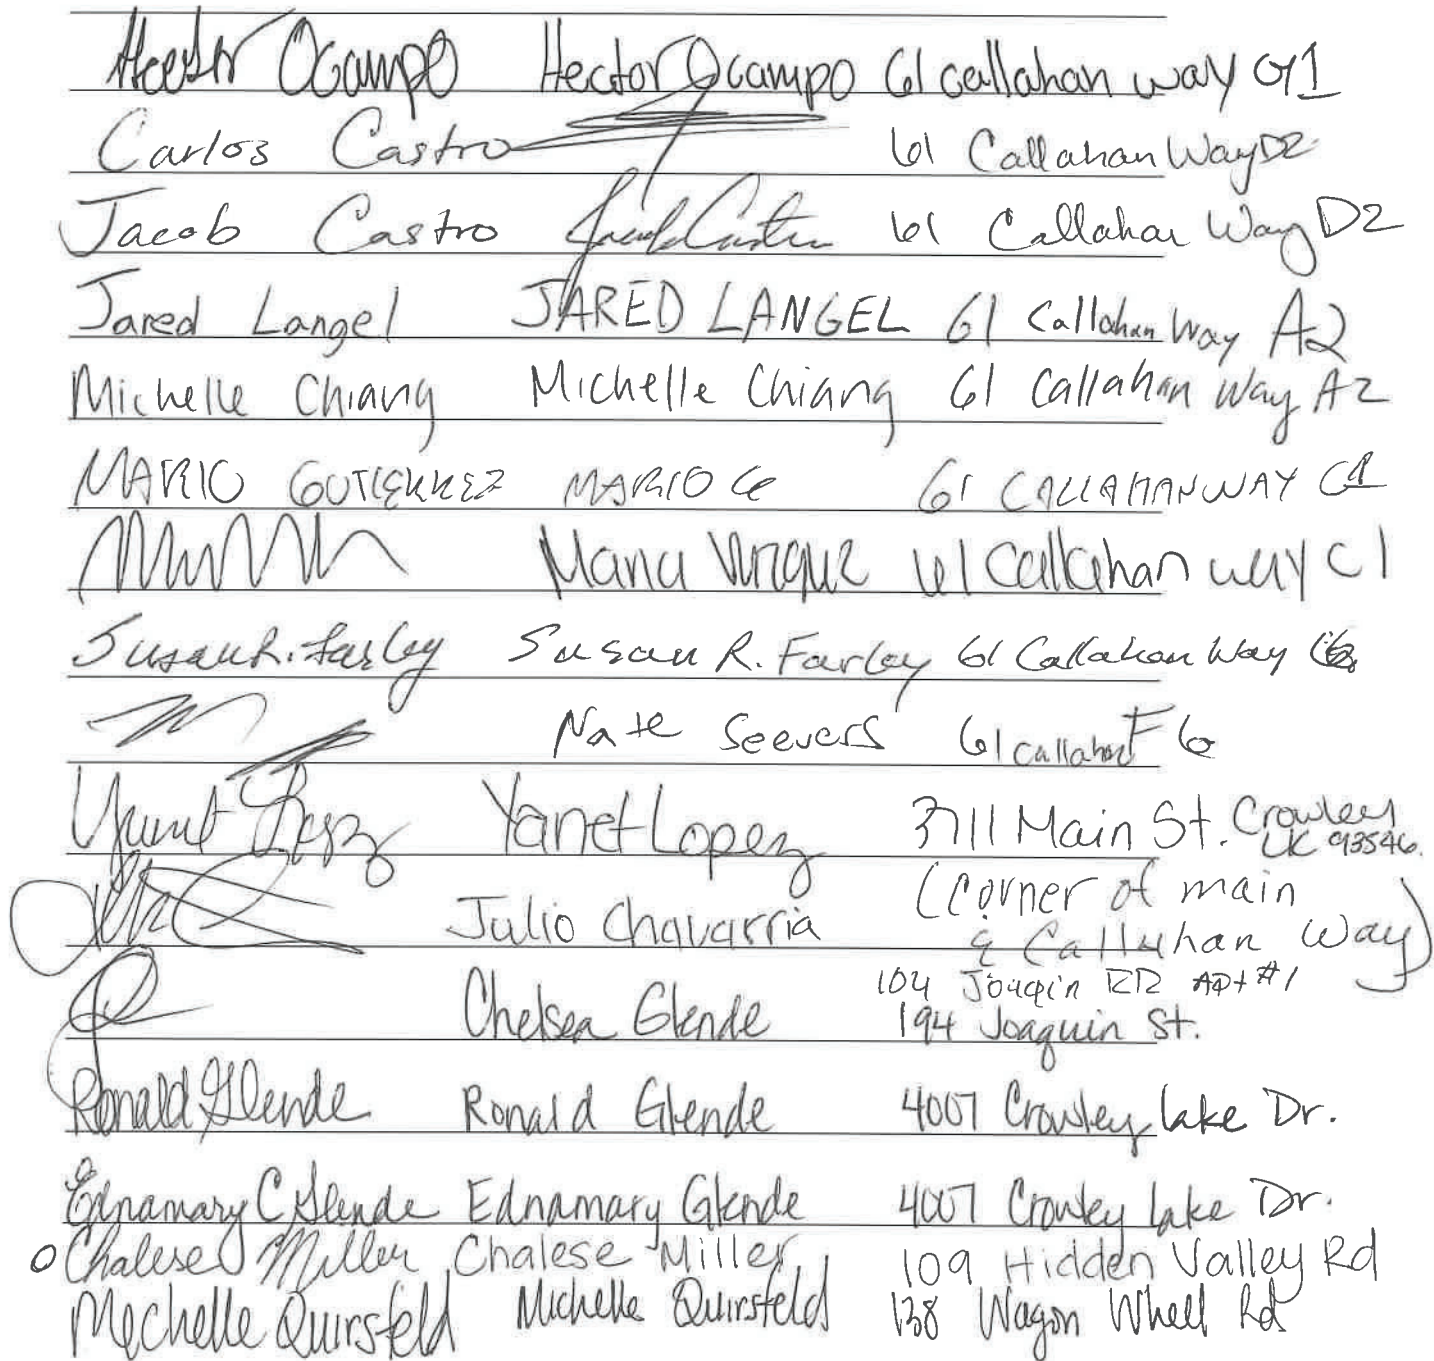 Hector Ocampo Hector Ocampo 61 callahan way G1
Carlos Castro 61 Callahan Way D2
Jacob Castro Jacob Castro 61 Callahan Way D2
Jared Langel JARED LANGEL 61 Callahan Way A2
Michelle Chiang Michelle Chiang 61 Callahan Way A2
MARIO GUTIERREZ MARIO G 61 CALLAHAN WAY C1
Maria 61 Callahan way C1
Susan R. Farley Susan R. Farley 61 Callahan Way
Nate Seevers 61 Callahan F6
Yanet Lopez Yanet Lopez 3711 Main St. Crowley
LK 93546.
Julio Chavarria (corner of main
& Callahan Way)
104 Joaqin RD Apt #1
Chelsea Glende 194 Joaquin St.
Ronald Glende Ronald Glende 4007 Crowley Lake Dr.
Ednamary C Glende Ednamary Glende 4007 Crowley Lake Dr.
Chalese Miller Chalese Miller 109 Hidden Valley Rd
Mechelle Quirsfeld Michelle Quirsfeld 138 Wagon Wheel Rd